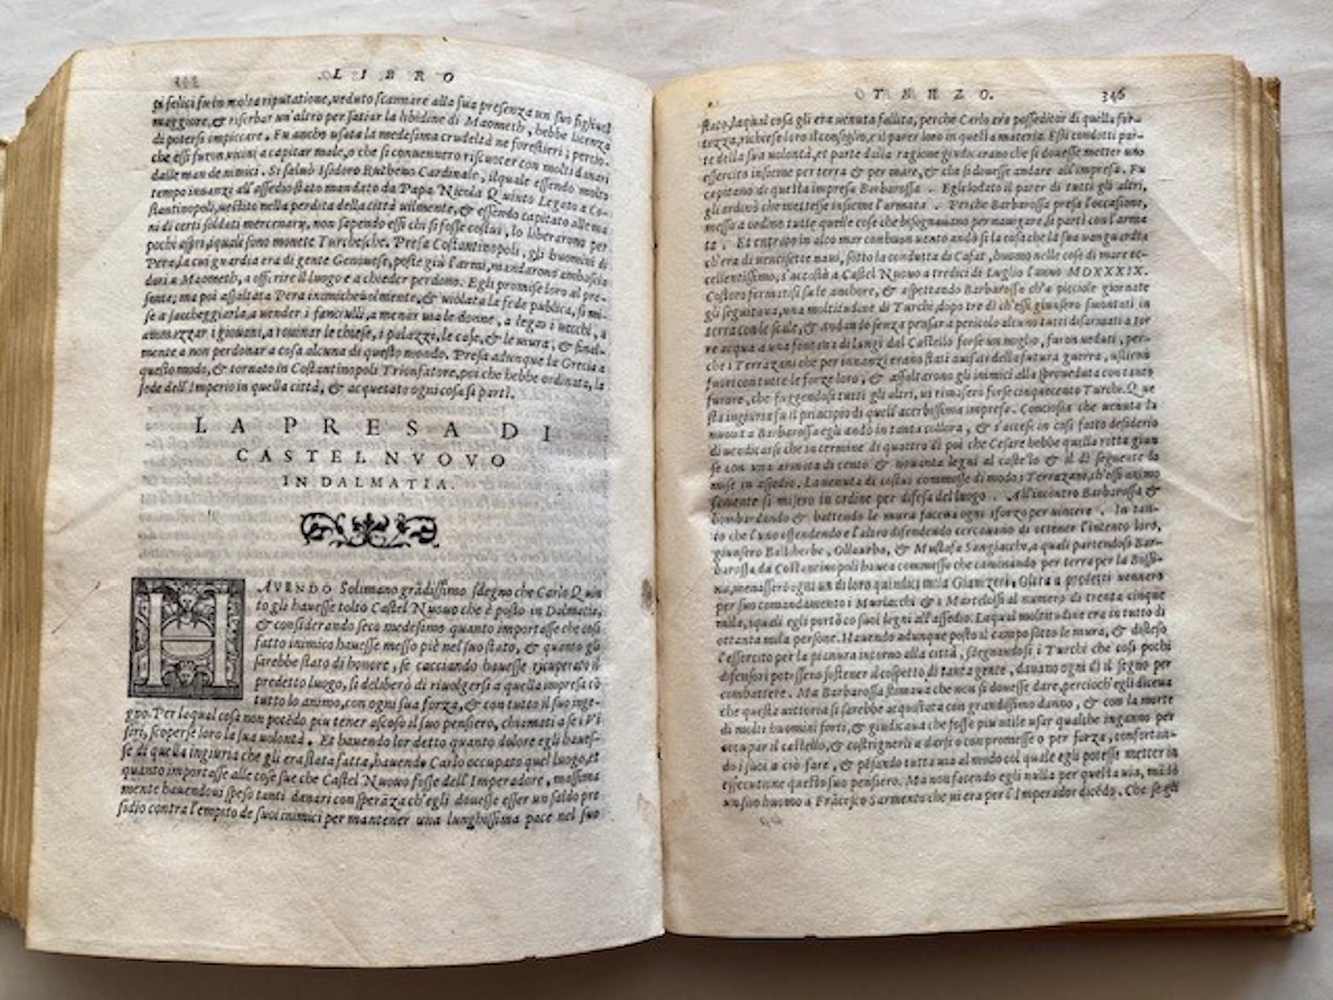 LIBRO
si felici fu in molta riputatione, veduto scannare alla sua presenza un suo figliuol
maggiore, & riserbar un'altro per satiar la libidine di Maometh, hebbe licenza
di potersi impiccare. Fu ancho usata la medesima crudeltà ne forestieri; percio-
che essi furon vicini a capitar male, o che si convennero riscuoter con molti danari
dalle man de nimici. Si salvò Isidoro Rutheno Cardinale, ilquale essendo molto
tempo inanzi all'assedio stato mandato da Papa Nicola Quinto Legato a Co-
stantinopoli, vestito nella perdita della città vilmente, & essendo capitato alle ma
ni di certi soldati mercenary, non sapendo essi chi si fosse costui, lo liberarono per
pochi aspri, iquali sono monete Turchesche. Presa Costantinopoli, gli huomini di
Pera, la cui guardia era di gente Genovese, poste giù l'armi, mandarono ambascia
dari a Maometh, a offrire il luogo e a chieder perdono. Egli promise loro al pre-
sente; ma poi assaltata Pera inimichevolmente, & violata la fede publica, si mi-
se a saccheggiarla, a vender i fanciulli, a menar via le donne, a legar i vecchi, a
ammazzar i giovani, a rovinar le chiese, i palazzi, le case, & le mura, & final-
mente a non perdonar a cosa alcuna di questo mondo. Presa adunque la Grecia a
questo modo, & tornato in Costantinopoli Trionfatore, poi che hebbe ordinata, la
sede dell'Imperio in quella città, & acquetato ogni cosa si partì.
LA PRESA DI
CASTEL NVOVO
IN DALMATIA.
HAVENDO Solimano grādissimo sdegno che Carlo Quin
to gli havesse tolto Castel Nuovo che è posto in Dalmatia,
& considerando seco medesimo quanto importasse che cosi
fatto inimico havesse messo piè nel suo stato, & quanto gli
sarebbe stato di honore, se cacciando havesse ricuperato il
predetto luogo, si deliberò di rivolgersi a quella impresa cō
tutto lo animo, con ogni sua forza, & con tutto il suo inge-
gno. Per laqual cosa non potēdo piu tener ascoso il suo pensiero, chiamati a se i Vi
siri, scoperse loro la sua volontà. Et havendo lor detto quanto dolore egli haves-
se di quella ingiuria che gli era stata fatta, havendo Carlo occupato quel luogo, et
quanto importasse alle cose sue che Castel Nuovo fosse dell'Imperadore, massima
mente havendovi speso tanti danari con sperāza ch'egli dovesse esser un saldo pre
sidio contra l'empito de suoi inimici per mantener una lunghissima pace nel suo
TERZO. 346
stato, laqual cosa gli era venuta fallita, perche Carlo era posseditor di quella for-
tezza, richiese loro il consiglio, e il parer loro in questa materia. Essi condotti par-
te della sua volontà, et parte dalla ragione giudicarano che si dovesse metter uno
essercito insieme per terra & per mare, & che si dovesse andare all'impresa. Fu
capitano di questa impresa Barbarossa. Egli lodato il parer di tutti gli altri,
gli ordinò che mettesse insieme l'armata. Perche Barbarossa presa l'occasione,
messo a ordine tutte quelle cose che bisognavano per navigare, si partì con l'arma
ta. Et entrato in alto mar con buon vento andò sì la cosa che la sua vanguardia
ch'era di ventisette navi, sotto la condutta di Cafat, huomo nelle cose di mare ec-
cellentissimo, s'accostò a Castel Nuovo a tredici di Luglio l'anno MDXXXIX.
Costoro fermatisi su le anchore, & aspettando Barbarossa ch'a picciole giornate
gli seguitava, una moltitudine di Turchi, dopo tre dì ch'essi giunsero smontati in
terra con le scale, & andando senza pensar a pericolo alcuno tutti disarmati a tor
re acqua a una fontana di lungi dal Castello forse un miglio, furon veduti, per-
che i Terrazani che per innanzi erano stati avisati della futura guerra, uscirono
fuori con tutte le forze loro, & assaltarono gli inimici alla sproveduta con tanto
furore, che fuggendosi tutti gli altri, vi rimasero forse cinquecento Turchi. Que
sta ingiuria fu il principio di quell'acerbissima impresa. Conciosia che venuta la
nuova a Barbarossa egli andò in tanta collera, & s'accese in così fatto desiderio
di vendicarsi che in termine di quattro dì poi che Cesare hebbe quella rotta giun
se con una armata di cento & novanta legni al castello & il dì seguente lo
mise in assedio. La venuta di costui commosse di modo i Terrazano, ch'essi animo
samente si misero in ordine per difesa del luogo. All'incontro Barbarossa &
bombardando & battendo le mura faceva ogni sforzo per vincere. In tan-
to che l'uno offendendo e l'altro difendendo cercavano di ottener l'intento loro,
giunsero Balherbe, Ollaurba, & Mustafa Sangiacchi, a quali partendosi Bar-
barossa da Costantinopoli havea commesso che caminando per terra per la Bossi-
na, menassero ogni un di loro quindici mila Gianizeri. Oltra a predetti vennero
per suo comandamento i Murlacchi & i Martelossi al numero di trenta cinque
mila, iquali egli portò co suoi legni all'assedio. Laqual moltitudine era in tutto di
ottanta mila persone. Havendo adunque posto il campo sotto le mura, & disteso
l'essercito per la pianura intorno alla città, sdegnandosi i Turchi che così pochi
difensori potessero sostener il cospetto di tanta gente, davano ogni dì il segno per
combattere. Ma Barbarossa stimava che non si dovesse dare, percioch'egli diceva
che questa vittoria si sarebbe acquistata con grandissimo danno, & con la morte
di molti huomini forti, & giudicava che fosse piu utile usar qualche inganno per
occupar il castello, & costrignerli a darsi o con promesse o per forza, confortan-
do i suoi a ciò fare, & pēsando tutta via al modo col quale egli potesse metter in
essecutione questo suo pensiero. Ma non facendo egli nulla per questa via, mādò
un suo huomo a Frācesco Sarmento che vi era per l'Imperador dicēdo. Che se gli